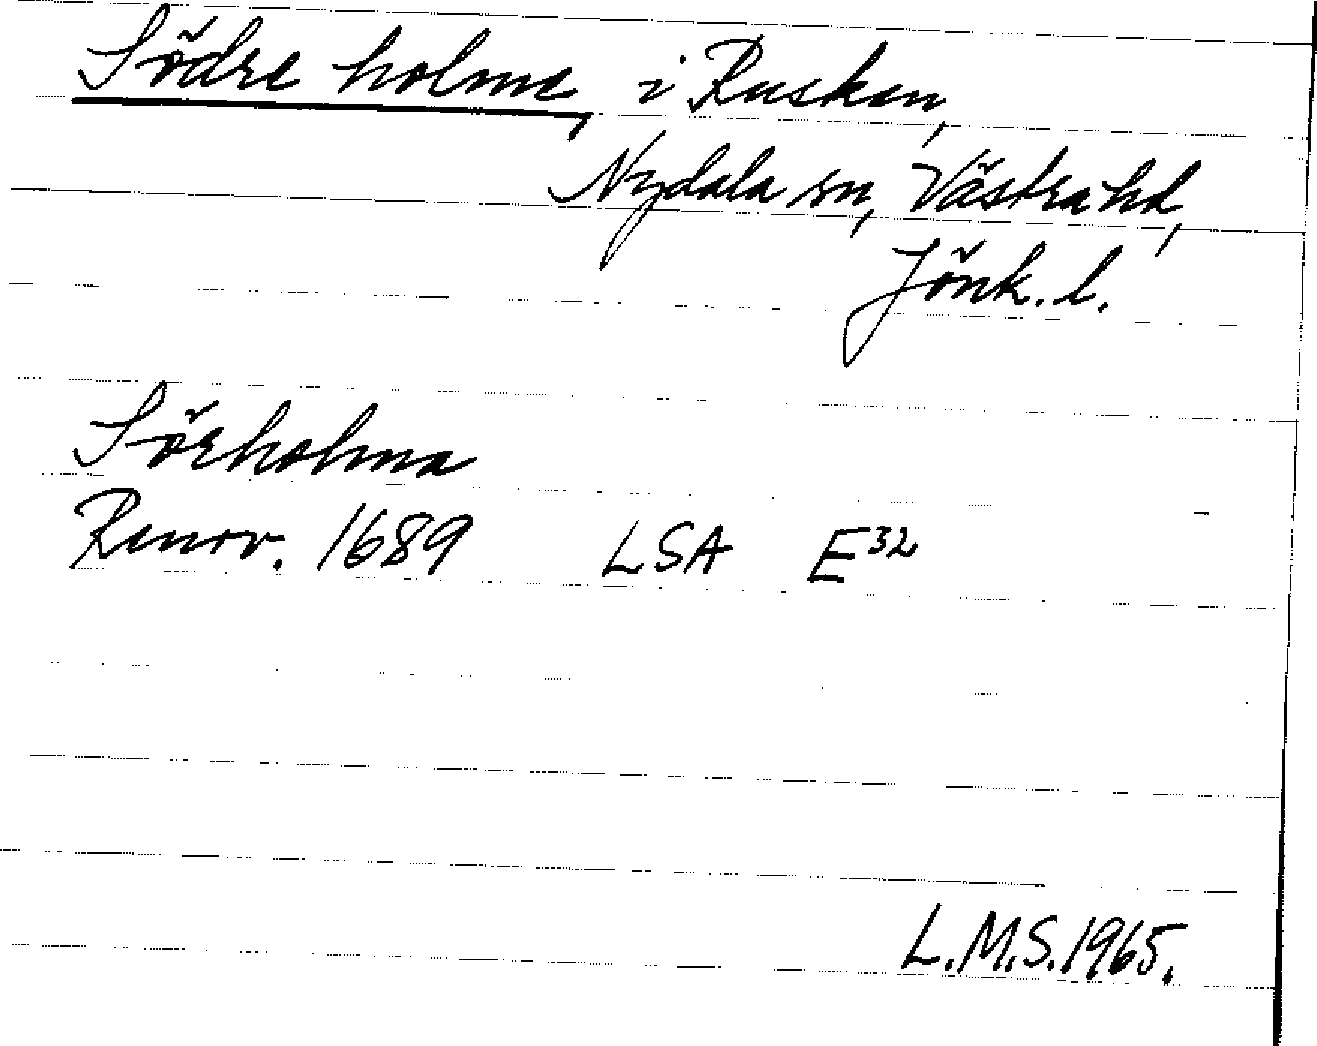 Södre holme, i Rusken,
Nydala sn, Västra hd,
Jönk. l.
Sörholma
Renov. 1689 LSA E32
L.M.S. 1965.